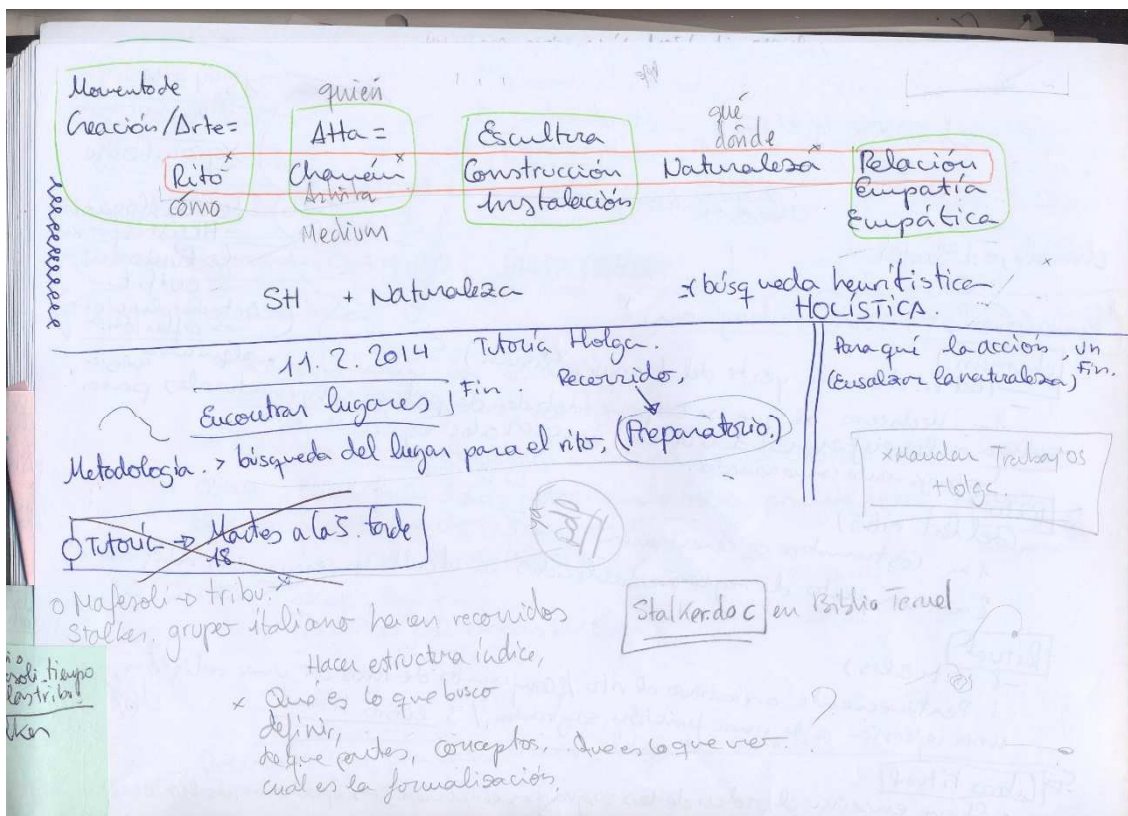 Momento de
Creación / Arte =
Rito
cómo
quién
Atta =
Chamán
Artista
Medium
Escultura
Construcción
Instalación
qué
dónde
Naturaleza
Relación
Empatía
Empática
SH + Naturaleza
búsqueda heurística
HOLÍSTICA.
11. 2. 2014 Tutoría Holga.
Encontrar lugares, Fin.
Recorrido,
Metodología. > búsqueda del lugar para el rito, (Preparatorio,)
Para qué la acción, un
(Ensalzar la naturaleza) Fin.
x Mandar Trabajos
Holga.
Tutoría → Martes a las 5. tarde
18
o Mafesoli → tribu.
Stalker. grupo italiano hacen recorridos
Stalker.doc en Biblio Teruel
Hacer estructura índice,
x Qué es lo que busco
definir,
de que partes, conceptos. Que es lo que
cual es la formalización
tiempo